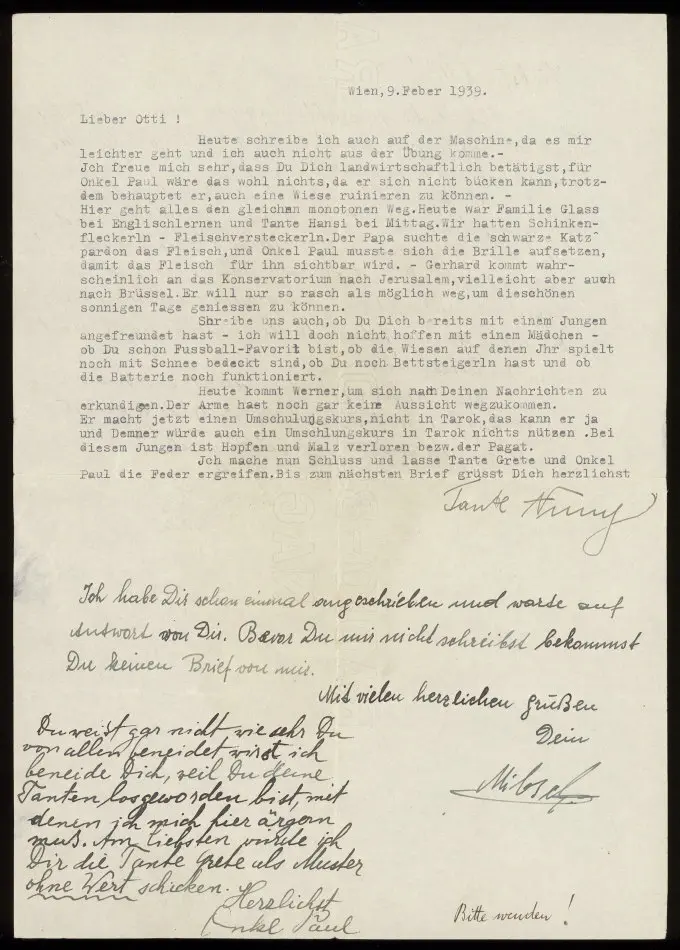 Wien, 9.Feber 1939.
Lieber Otti !
Heute schreibe ich auch auf der Maschine,da es mir
leichter geht und ich auch nicht aus der Übung komme.-
Jch freue mich sehr,dass Du Dich landwirtschaftlich betätigst,für
Onkel Paul wäre das wohl nichts,da er sich nicht bücken kann,trotz-
dem behauptet er,auch eine Wiese ruinieren zu können. -
Hier geht alles den gleichen monotonen Weg.Heute war Familie Glass
bei Englischlernen und Tante Hansi bei Mittag.Wir hatten Schinken-
fleckerln - Fleischversteckerln.Der Papa suchte die schwarze Katz
pardon das Fleisch,und Onkel Paul musste sich die Brille aufsetzen,
damit das Fleisch für ihn sichtbar wird. - Gerhard kommt wahr-
scheinlich an das Konservatorium nach Jerusalem,vielleicht aber auch
nach Brüssel.Er will nur so rasch als möglich weg,um dieschönen
sonnigen Tage geniessen zu können.
Shreibe uns auch,ob Du Dich bereits mit einem Jungen
angefreundet hast - ich will doch nicht hoffen mit einem Mädchen -
ob Du schon Fussball-Favorit bist,ob die Wiesen auf denen Jhr spielt
noch mit Schnee bedeckt sind,ob Du noch Bettsteigerln hast und ob
die Batterie noch funktioniert.
Heute kommt Werner,um sich nach Deinen Nachrichten zu
erkundigen.Der Arme hast noch gar keine Aussicht wegzukommen.
Er macht jetzt einen Umschulungskurs,nicht in Tarok,das kann er ja
und Demner würde auch ein Umschlungskurs in Tarok nichts nützen .Bei
diesem Jungen ist Hopfen und Malz verloren bezw.der Pagat.
Jch mache nun Schluss und lasse Tante Grete und Onkel
Paul die Feder ergreifen.Bis zum nächsten Brief grüsst Dich herzlichst
Tante
Ich habe Dir schon einmal angeschrieben und warte auf
Antwort von Dir. Bevor Du mir nicht schreibst bekommst
Du keinen Brief von mir.
Mit vielen herzlichen Grüßen
Dein
Du weist gar nicht, wie sehr Du
von allen beneidet wirst ich
beneide Dich, weil Du deine
Tanten losgeworden bist, mit
denen ich mich hier ärgern
muß. Am liebsten würde ich
Dir die Tante Grete als Muster
ohne Wert schicken.
Herzlichst
Onkel Paul
Bitte wenden !